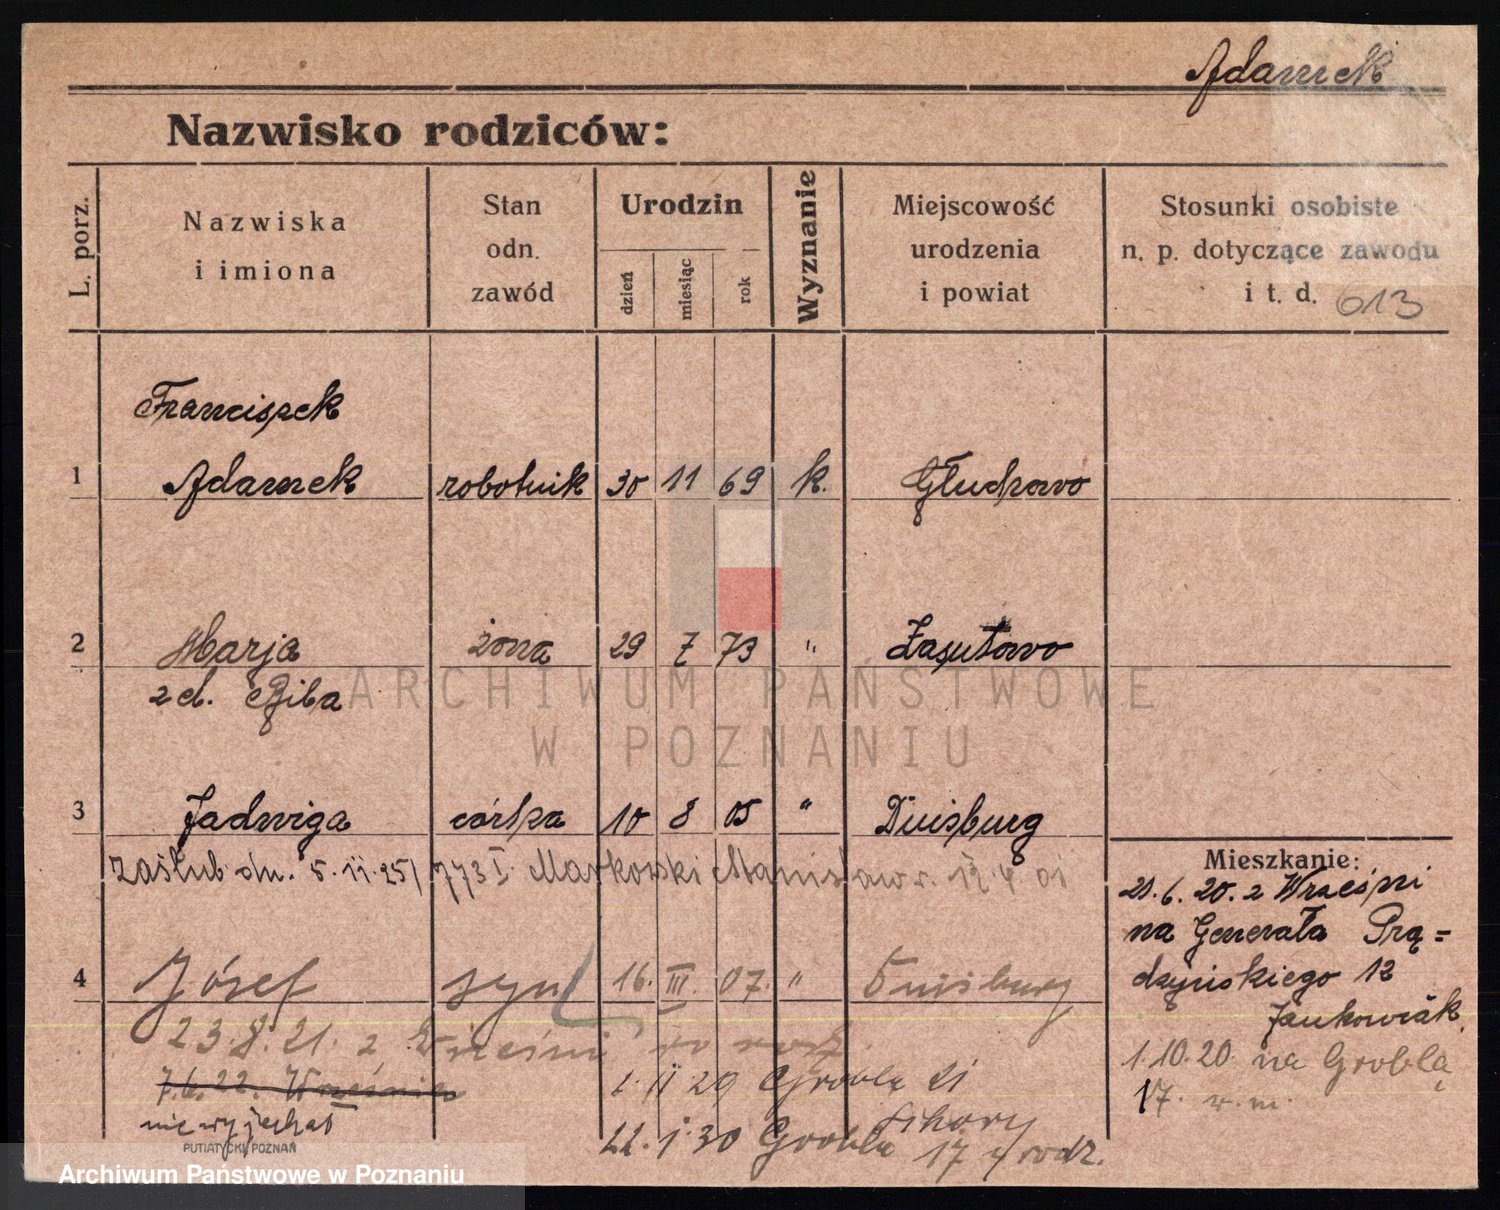 Adamek
Nazwisko rodziców:
L. porz.
Nazwiska
i imiona
Stan
odn.
zawód
Urodzin
dzień
miesiąc
rok
Wyznanie
Miejscowość
urodzenia
i powiat
Stosunki osobiste
n. p. dotyczące zawodu
i t. d.
613
Franciszek
1 Adamek robotnik 30 11 69 k. Głuchowo
2 Marja żona 29 7 73 " Zasutowo
z d. Biba
3 Jadwiga córka 10 8 05 " Duisburg
zaślub. dn. 5.II.25/ 773 I. Markowski Stanisław r. 4 01
Mieszkanie:
6. 20. z Wrześni
na Generała Prą=
dzyńskiego 12
Jankowiak
1.10.20. na Groblą
17. w.m.
4 Józef syn 16. III. 07. " Duisburg
23.8.21. z Wrześni
7.6.22. Września
nie wyjechał
II 29 Grobla
Sikory
22.1.30 Grobla 17 rodz.
PUTIATYCKI, POZNAŃ
ARCHIWUM PAŃSTWOWE
W POZNANIU
Archiwum Państwowe w Poznaniu